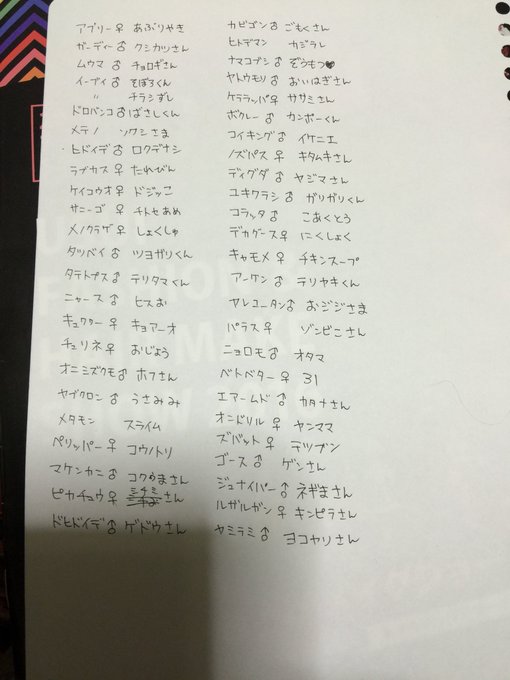 アブリー♀ あぶりやき
ガーディー♂ クシカツさん
ムウマ♂ チョロギさん
イーブイ♂ そぼろくん
〃 チラシずし
ドロバンコ♂ ばさしくん
メテノ ソワシさま
ヒドイデ♂ ロクデナシ
ラブカス♀ たれびん
ケイコウオ♀ ドジッこ
サニーゴ♀ チトセあめ
メノクラゲ♀ しょくしゅ
タツベイ♂ ツヨガリくん
タテトプス♂ テリタマくん
ニャース♂ ヒスお
キュワワー♀ キョアーオ
チュリネ♀ おじょう
オニシズクモ♂ ホフさん
ヤブクロン♂ うさみみ
メタモン スライム
ペリッパー♀ コウノトリ
マケンカニ♂ コクうまさん
ピカチュウ♀ さん
ドヒドイデ♂ ゲドウさん
カビゴン♂ ごもくさん
ヒトデマン カジラレ
ナマコブシ♂ ぞうもつ♥
ヤトウモリ♂ おいはぎさん
ケララッパ♀ ササミさん
ボクレー♂ カンポーくん
コイキング♂ イケニエ
ノズパス♀ キタムキさん
ディグダ♂ ヤジマさん
ユキワラシ♂ ガリガリくん
コラッタ♂ こあくとう
デカグース♀ にくしょく
キャモメ♀ チキンスープ
アーケン♂ テリヤキくん
ヤレユータン♂ おジジさま
パラス♀ ゾンビこさん
ニョロモ♂ オタマ
ベトベター♀ 31
エアームド♂ カタナさん
オニドリル♀ ヤンママ
ズバット♀ テツブン
ゴース♂ ゲンさん
ジュナイパー♂ ネギまさん
ルガルガン♀ キンピラさん
ヤミラミ♂ ヨコヤリさん